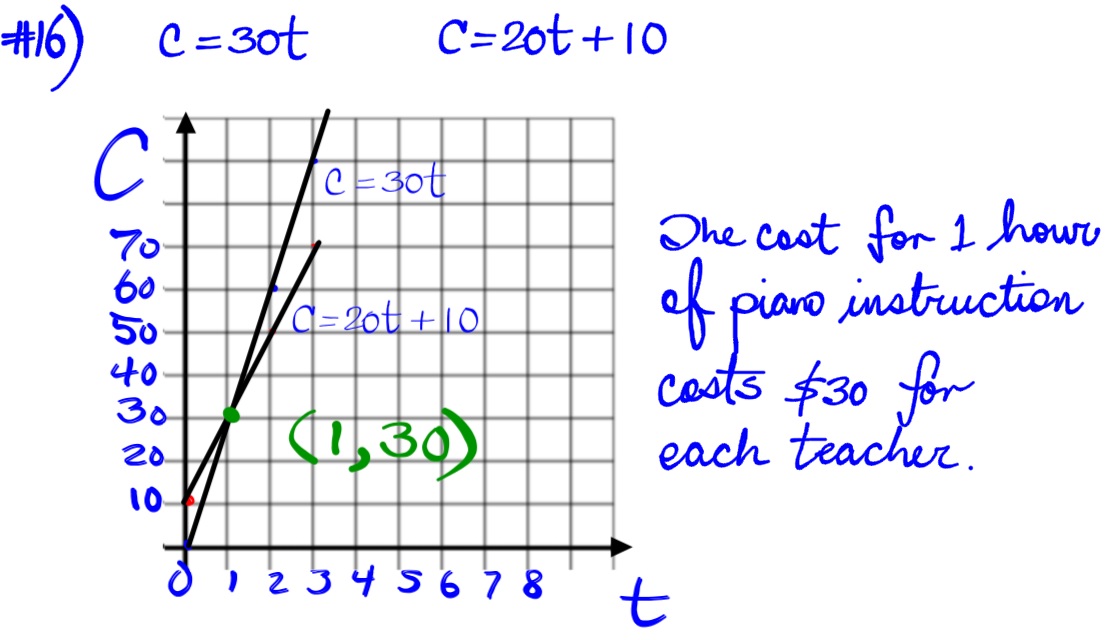 #16) C = 30t C = 20t + 10
C
C = 30t
70
60
50
C = 20t + 10
40
30
(1, 30)
20
10
0 1 2 3 4 5 6 7 8
t
The cost for 1 hour
of piano instruction
costs $30 for
each teacher.